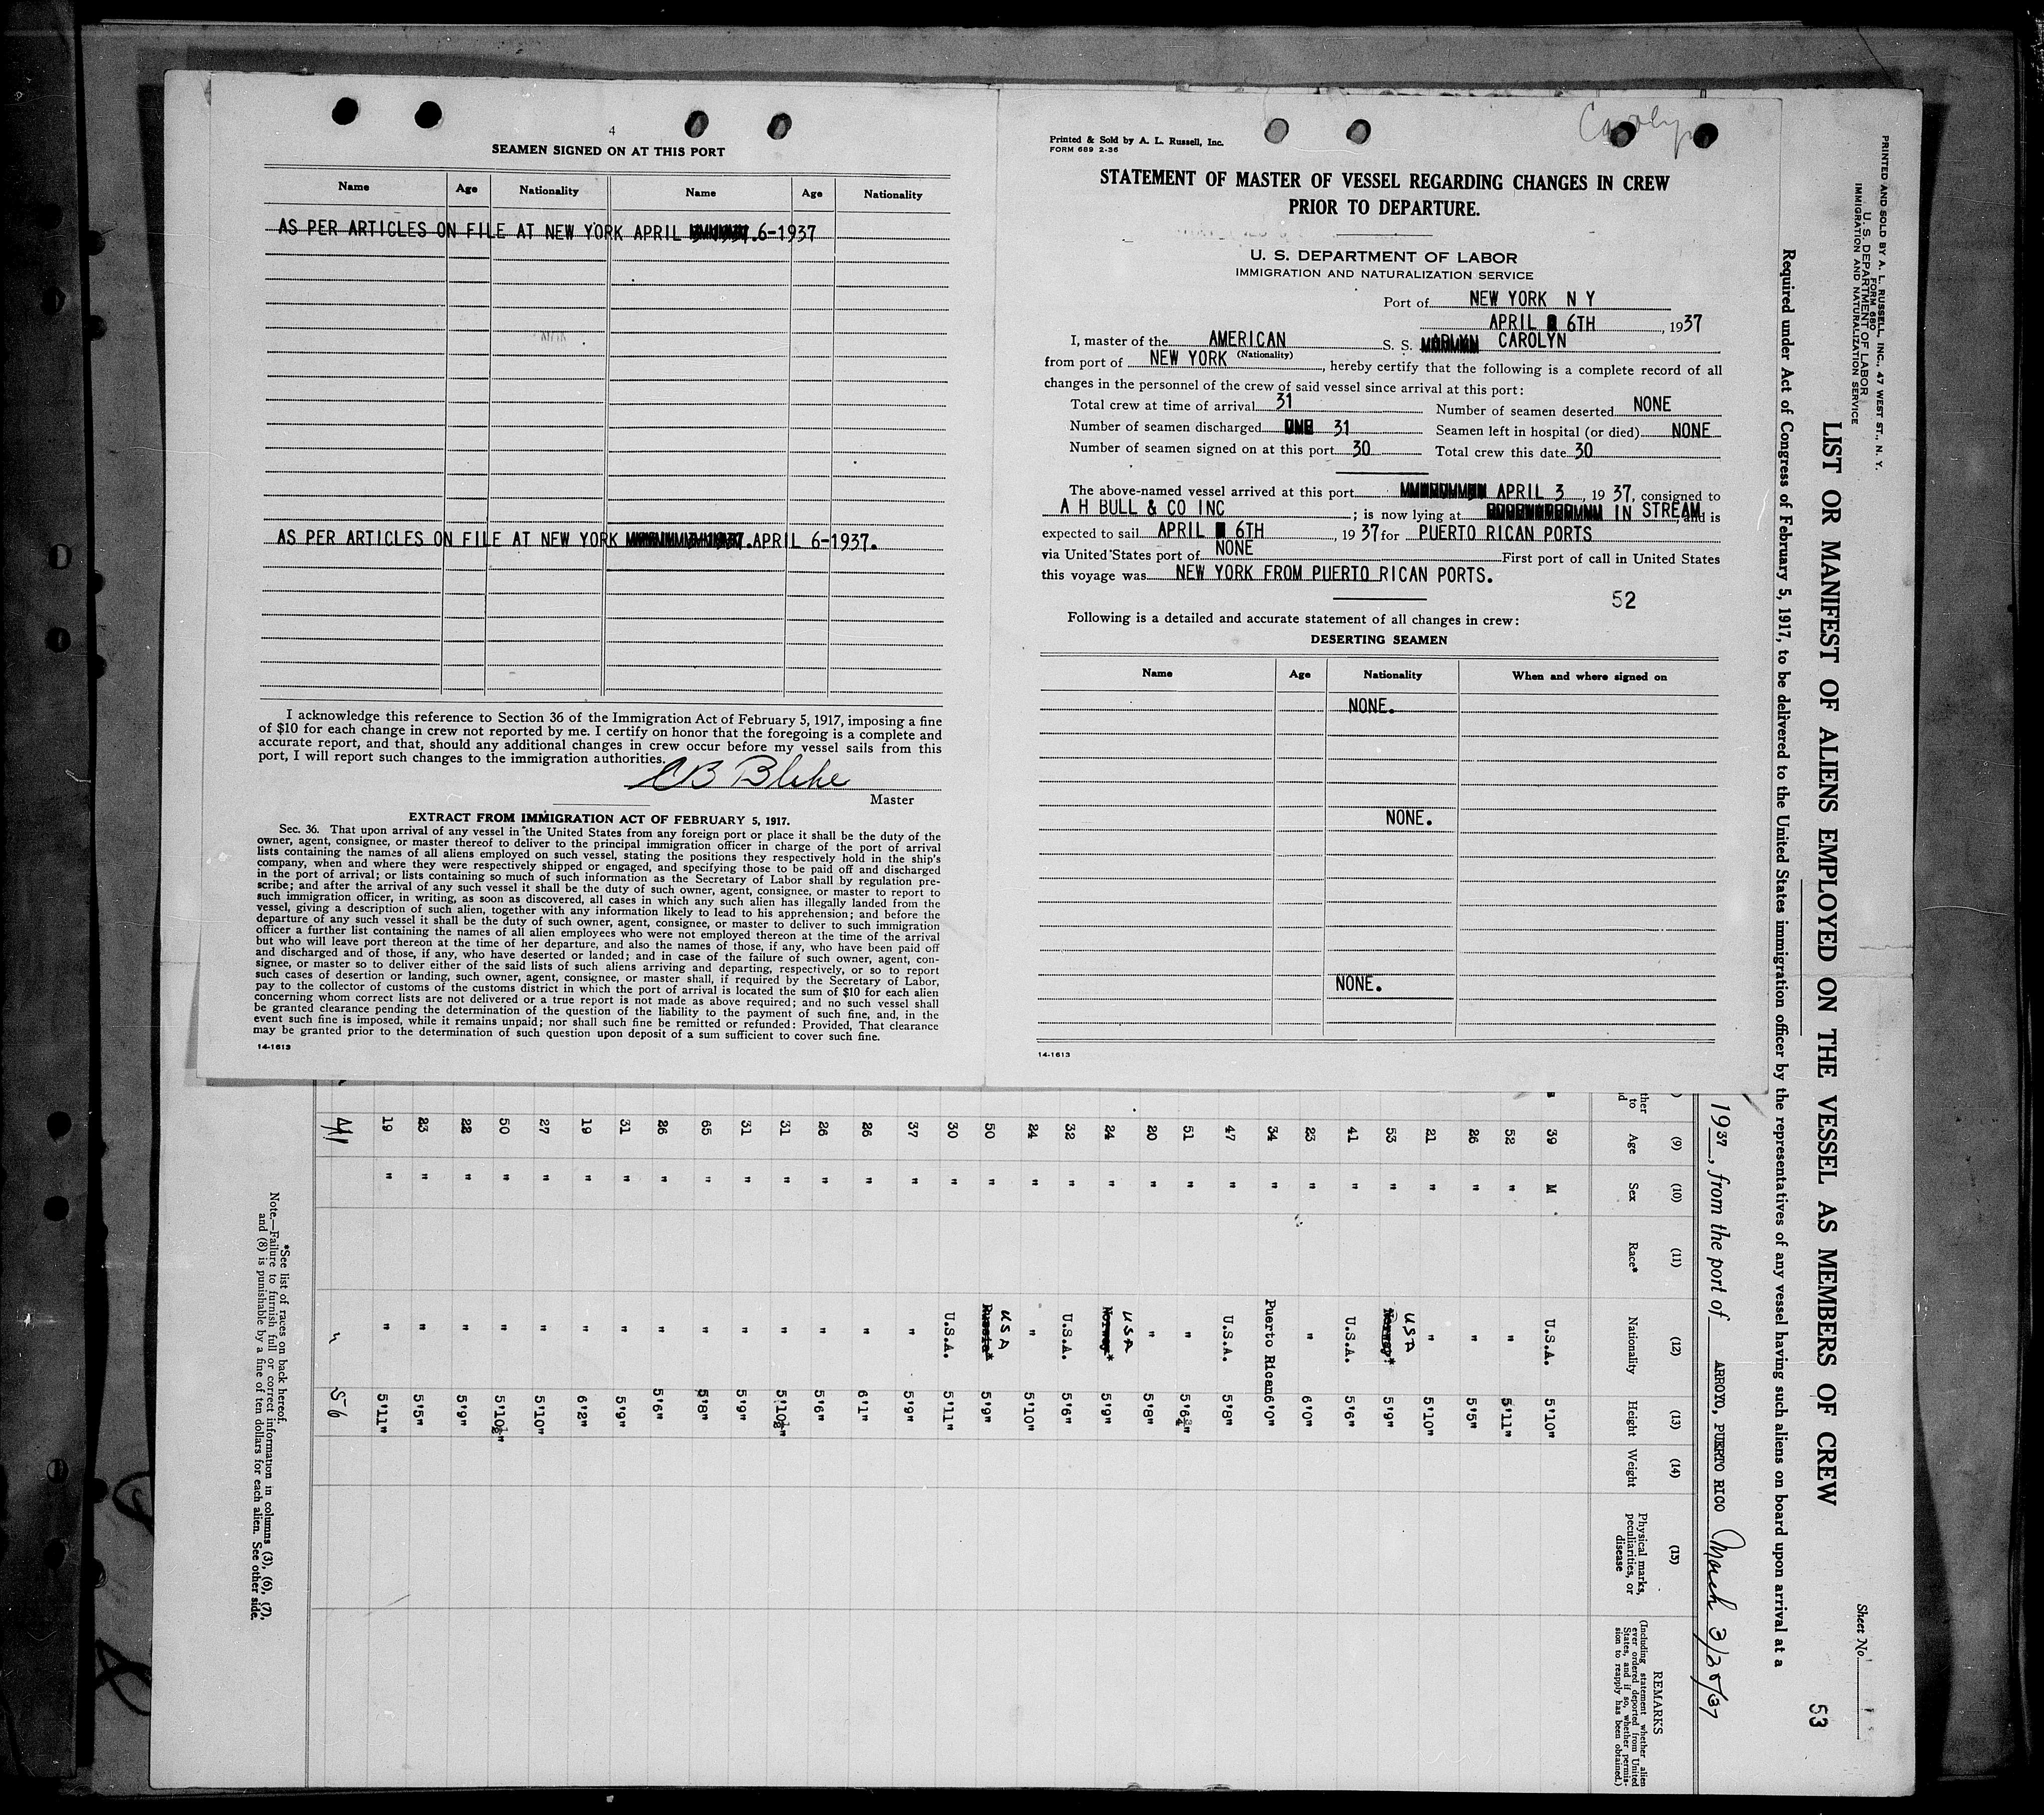 4
SEAMEN SIGNED ON AT THIS PORT
Name Age Nationality Name Age Nationality
AS PER ARTICLES ON FILE AT NEW YORK APRIL 6-1937
AS PER ARTICLES ON FILE AT NEW YORK APRIL 6-1937.
I acknowledge this reference to Section 36 of the Immigration Act of February 5, 1917, imposing a fine
of $10 for each change in crew not reported by me. I certify on honor that the foregoing is a complete and
accurate report, and that, should any additional changes in crew occur before my vessel sails from this
port, I will report such changes to the immigration authorities.
CB Blake
Master
EXTRACT FROM IMMIGRATION ACT OF FEBRUARY 5, 1917.
Sec. 36. That upon arrival of any vessel in the United States from any foreign port or place it shall be the duty of the
owner, agent, consignee, or master thereof to deliver to the principal immigration officer in charge of the port of arrival
lists containing the names of all aliens employed on such vessel, stating the positions they respectively hold in the ship's
company, when and where they were respectively shipped or engaged, and specifying those to be paid off and discharged
in the port of arrival; or lists containing so much of such information as the Secretary of Labor shall by regulation pre-
scribe; and after the arrival of any such vessel it shall be the duty of such owner, agent, consignee, or master to report to
such immigration officer, in writing, as soon as discovered, all cases in which any such alien has illegally landed from the
vessel, giving a description of such alien, together with any information likely to lead to his apprehension; and before the
departure of any such vessel it shall be the duty of such owner, agent, consignee, or master to deliver to such immigration
officer a further list containing the names of all alien employees who were not employed thereon at the time of the arrival
but who will leave port thereon at the time of her departure, and also the names of those, if any, who have been paid off
and discharged and of those, if any, who have deserted or landed; and in case of the failure of such owner, agent, con-
signee, or master so to deliver either of the said lists of such aliens arriving and departing, respectively, or so to report
such cases of desertion or landing, such owner, agent, consignee, or master shall, if required by the Secretary of Labor,
pay to the collector of customs of the customs district in which the port of arrival is located the sum of $10 for each alien
concerning whom correct lists are not delivered or a true report is not made as above required; and no such vessel shall
be granted clearance pending the determination of the question of the liability to the payment of such fine, and, in the
event such fine is imposed, while it remains unpaid; nor shall such fine be remitted or refunded: Provided, That clearance
may be granted prior to the determination of such question upon deposit of a sum sufficient to cover such fine.
14-1613
Carolyn
Printed & Sold by A. L. Russell, Inc.
FORM 689 2-36
STATEMENT OF MASTER OF VESSEL REGARDING CHANGES IN CREW
PRIOR TO DEPARTURE.
U. S. DEPARTMENT OF LABOR
IMMIGRATION AND NATURALIZATION SERVICE
Port of NEW YORK N Y
APRIL 6TH, 1937
I, master of the AMERICAN S. S. CAROLYN
(Nationality)
from port of NEW YORK, hereby certify that the following is a complete record of all
changes in the personnel of the crew of said vessel since arrival at this port:
Total crew at time of arrival 31 Number of seamen deserted NONE
Number of seamen discharged 31 Seamen left in hospital (or died) NONE
Number of seamen signed on at this port 30 Total crew this date 30
The above-named vessel arrived at this port APRIL 3, 1937, consigned to
A H BULL & CO INC; is now lying at IN STREAM, and is
expected to sail APRIL 6TH, 1937 for PUERTO RICAN PORTS
via United States port of NONE First port of call in United States
this voyage was NEW YORK FROM PUERTO RICAN PORTS.
52
Following is a detailed and accurate statement of all changes in crew:
DESERTING SEAMEN
Name Age Nationality When and where signed on
NONE.
NONE.
NONE.
14-1613
PRINTED AND SOLD BY A. L. RUSSELL, INC., 47 WEST ST., N. Y.
FORM 680
U. S. DEPARTMENT OF LABOR
IMMIGRATION AND NATURALIZATION SERVICE
Sheet No.
53
LIST OR MANIFEST OF ALIENS EMPLOYED ON THE VESSEL AS MEMBERS OF CREW
Required under Act of Congress of February 5, 1917, to be delivered to the United States immigration officer by the representatives of any vessel having such aliens on board upon arrival at a
1937, from the port of ARROYO, PUERTO RICO March 3/25/37
(9) (10) (11) (12) (13) (14) (15)
Age Sex Race* Nationality Height Weight Physical marks, peculiarities, or disease
REMARKS
(Including statement whether alien ever ordered deported from United States, and if so, whether permission to reapply has been obtained.)
39 M U.S.A. 5'10"
52 " " 5'11"
26 " " 5'5"
21 " " 5'10"
53 " Norway* USA 5'9"
41 " U.S.A. 5'6"
23 " " 6'0"
34 " Puerto Rican 6'0"
47 " U.S.A. 5'8"
51 " " 5'6¾"
20 " " 5'8"
24 " Norway* USA 5'9"
32 " U.S.A. 5'6"
24 " " 5'10"
50 " Russia* USA 5'9"
30 " U.S.A. 5'11"
37 " " 5'9"
26 " " 6'1"
26 " " 5'6"
31 " " 5'10½"
31 " " 5'9"
65 " " 5'8"
26 " " 5'6"
31 " " 5'9"
19 " " 6'2"
27 " " 5'10"
50 " " 5'10½"
22 " " 5'9"
23 " " 5'5"
19 " " 5'11"
" 5-6
*See list of races on back hereof.
Note.—Failure to furnish full or correct information in columns (3), (6), (7),
and (8) is punishable by a fine of ten dollars for each alien. See other side.